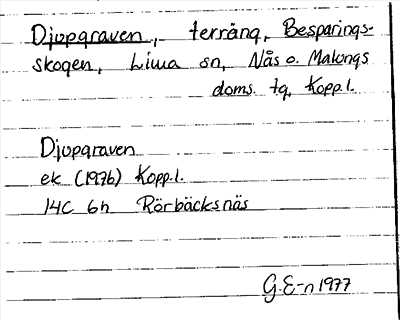 Djupgraven, terräng, Besparings-
skogen, Lima sn, Nås o. Malungs
doms. tg, Kopp.l.
Djupgraven
ek (1976) Kopp.l.
14C 6h Rörbäcksnäs
G.E-n 1977